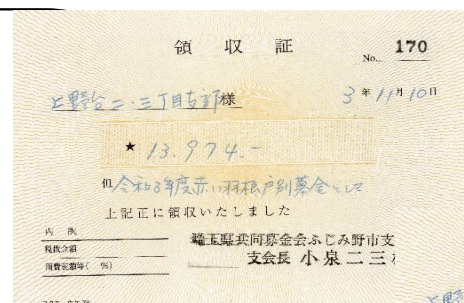 領収証
No. 170
上野台二・三丁目支部様
3年11月10日
★ 13.974.-
但 令和3年度赤い羽根戸別募金として
上記正に領収いたしました
内訳
税抜金額
消費税額等( %)
埼玉県共同募金会ふじみ野市支
支会長 小泉二三
上野